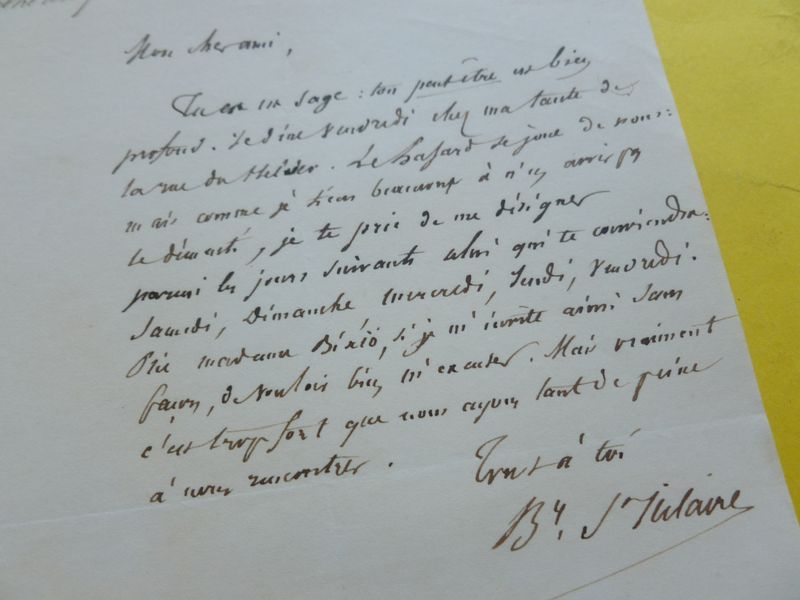 Mon cher ami,
Tu es un sage : ton peut être est bien
profond. Je dîne Vendredi chez ma tante de
la rue du Helder. Le hasard se joue de nous :
mais comme je tiens beaucoup à n'en avoir pas
le démenti, je te prie de me désigner
parmi les jours suivants celui qui te conviendra :
Samedi, Dimanche, mercredi, Jeudi, Vendredi.
Prie madame Bixio, si je m'invite ainsi sans
façon, de vouloir bien m'excuser. Mais vraiment
c'est trop fort que nous ayons tant de peine
à nous rencontrer.
Tout à toi
By. St Hilaire